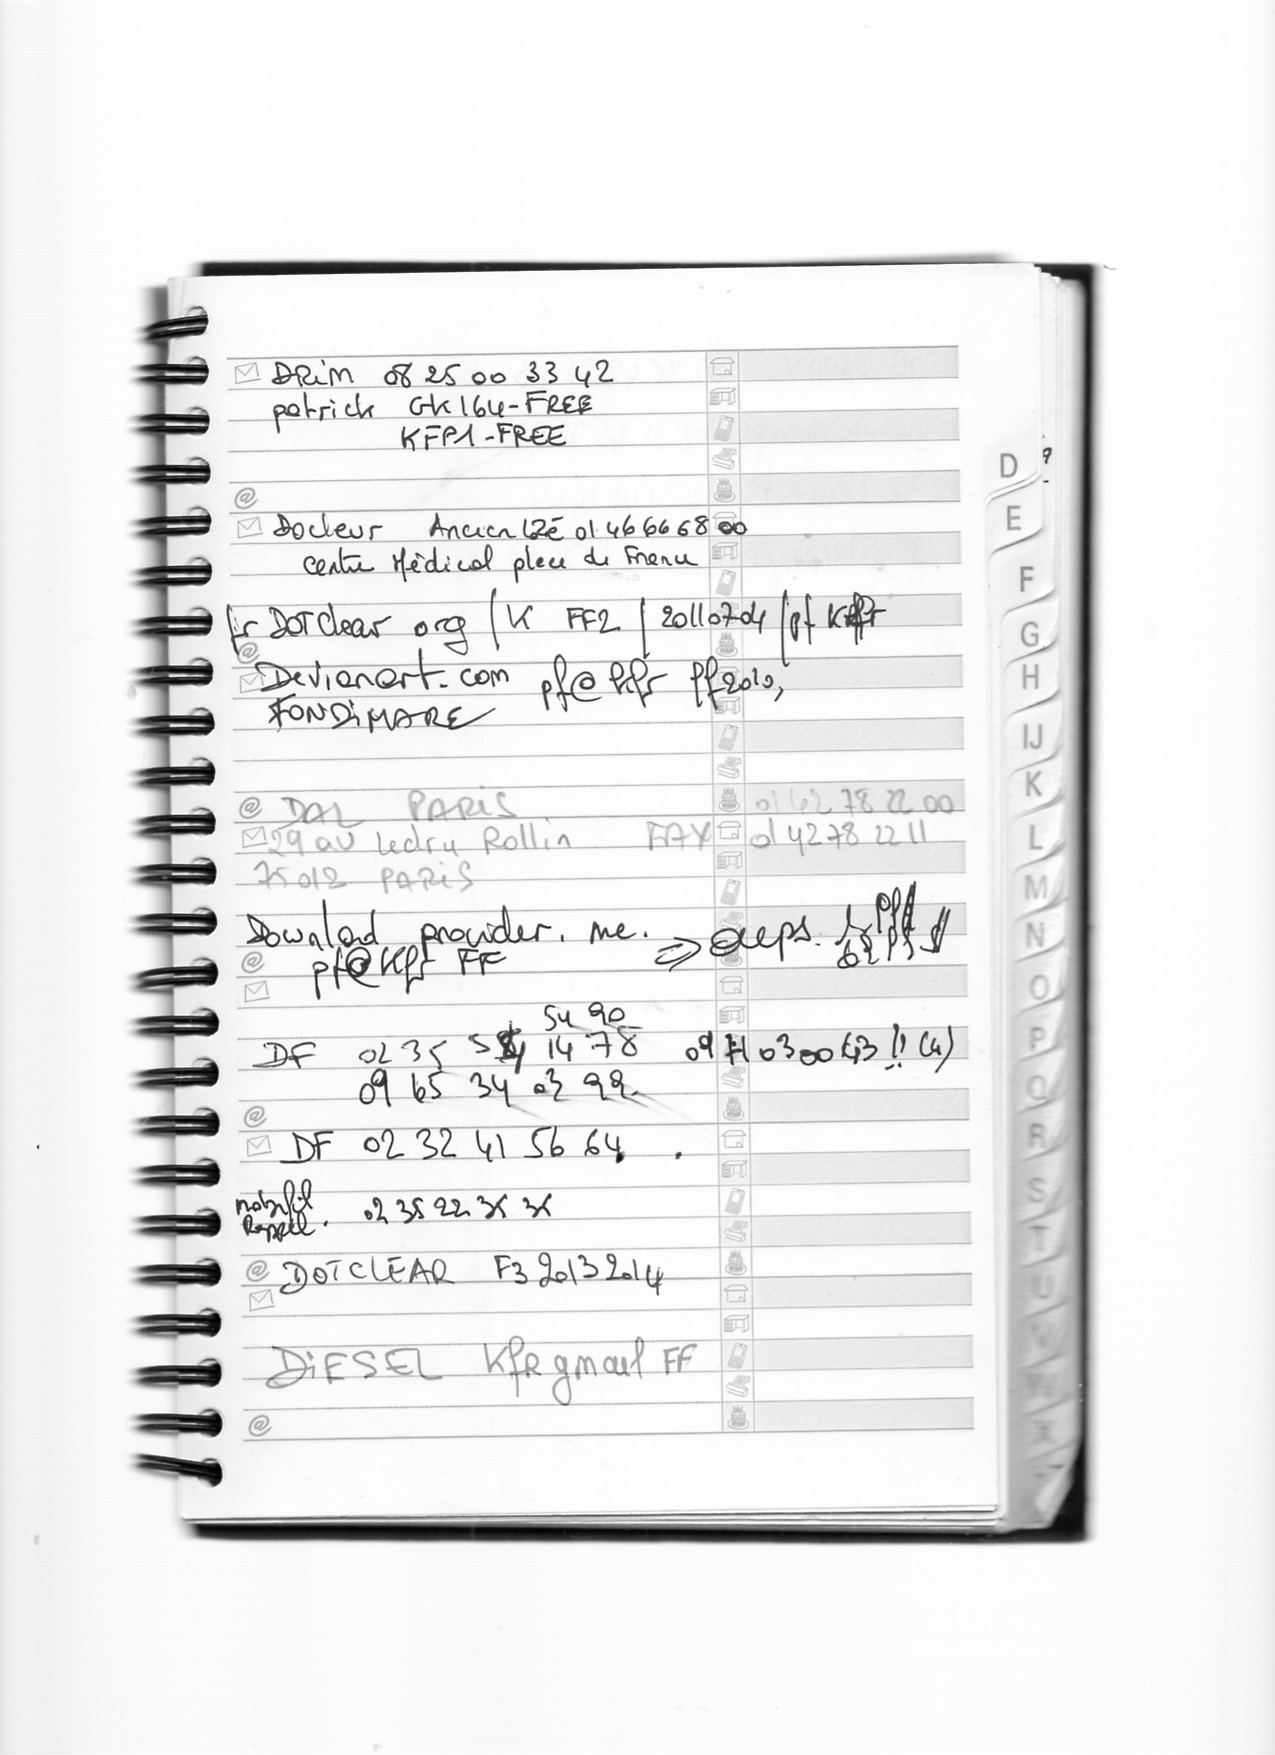 DRiM 08 25 00 33 42
patrick GK164-FREE
KFP1-FREE
Docteur Ancien 01 46 66 68 00
centre Médical place de
fr DOTclear org / K FF2 / 20110704 / pf
Devianart.com pf@kfr
FONDiMARE
@ DAL PARiS 01 42 78 22 00
29 av Ledru Rollin FAX 01 42 78 22 11
75012 PARiS
Download provider. me. ⇒
pf@Kfr FF
54 90
DF 02 35 14 78 !! (4)
09 65 34 03 99
DF 02 32 41 56 64
Rappel. 02 35 22 35 35
DOTCLEAR F3 2013 2014
DiESEL KfR gmail FF
D
E
F
G
H
IJ
K
L
M
N
O
P
Q
R
S
T
U
V
W
X